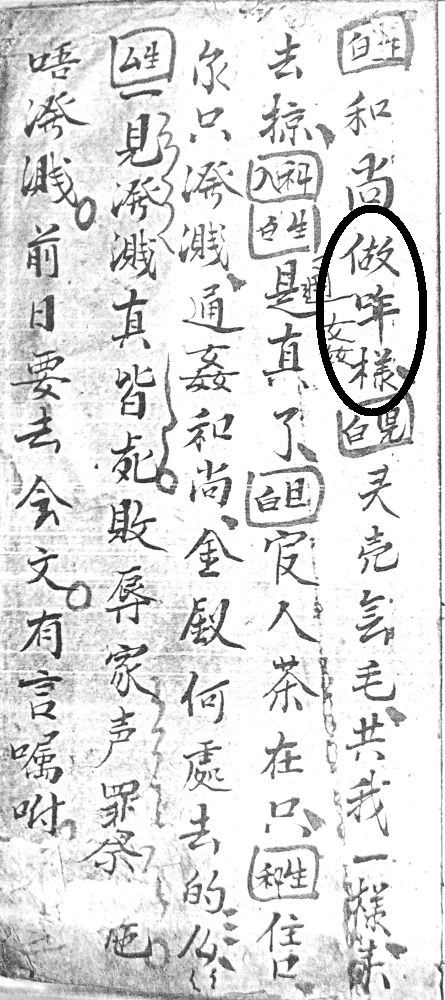 生白和尚做咩樣兒白灵壳冇毛共我一樣
去掠入科生白是真了旦白官人茶在只生科住口
通姦
你只潑濺通姦和尚金釵何處去的
生一見潑濺真皆死敗辱家声罪
唔潑濺前日要去会文有言嘱咐